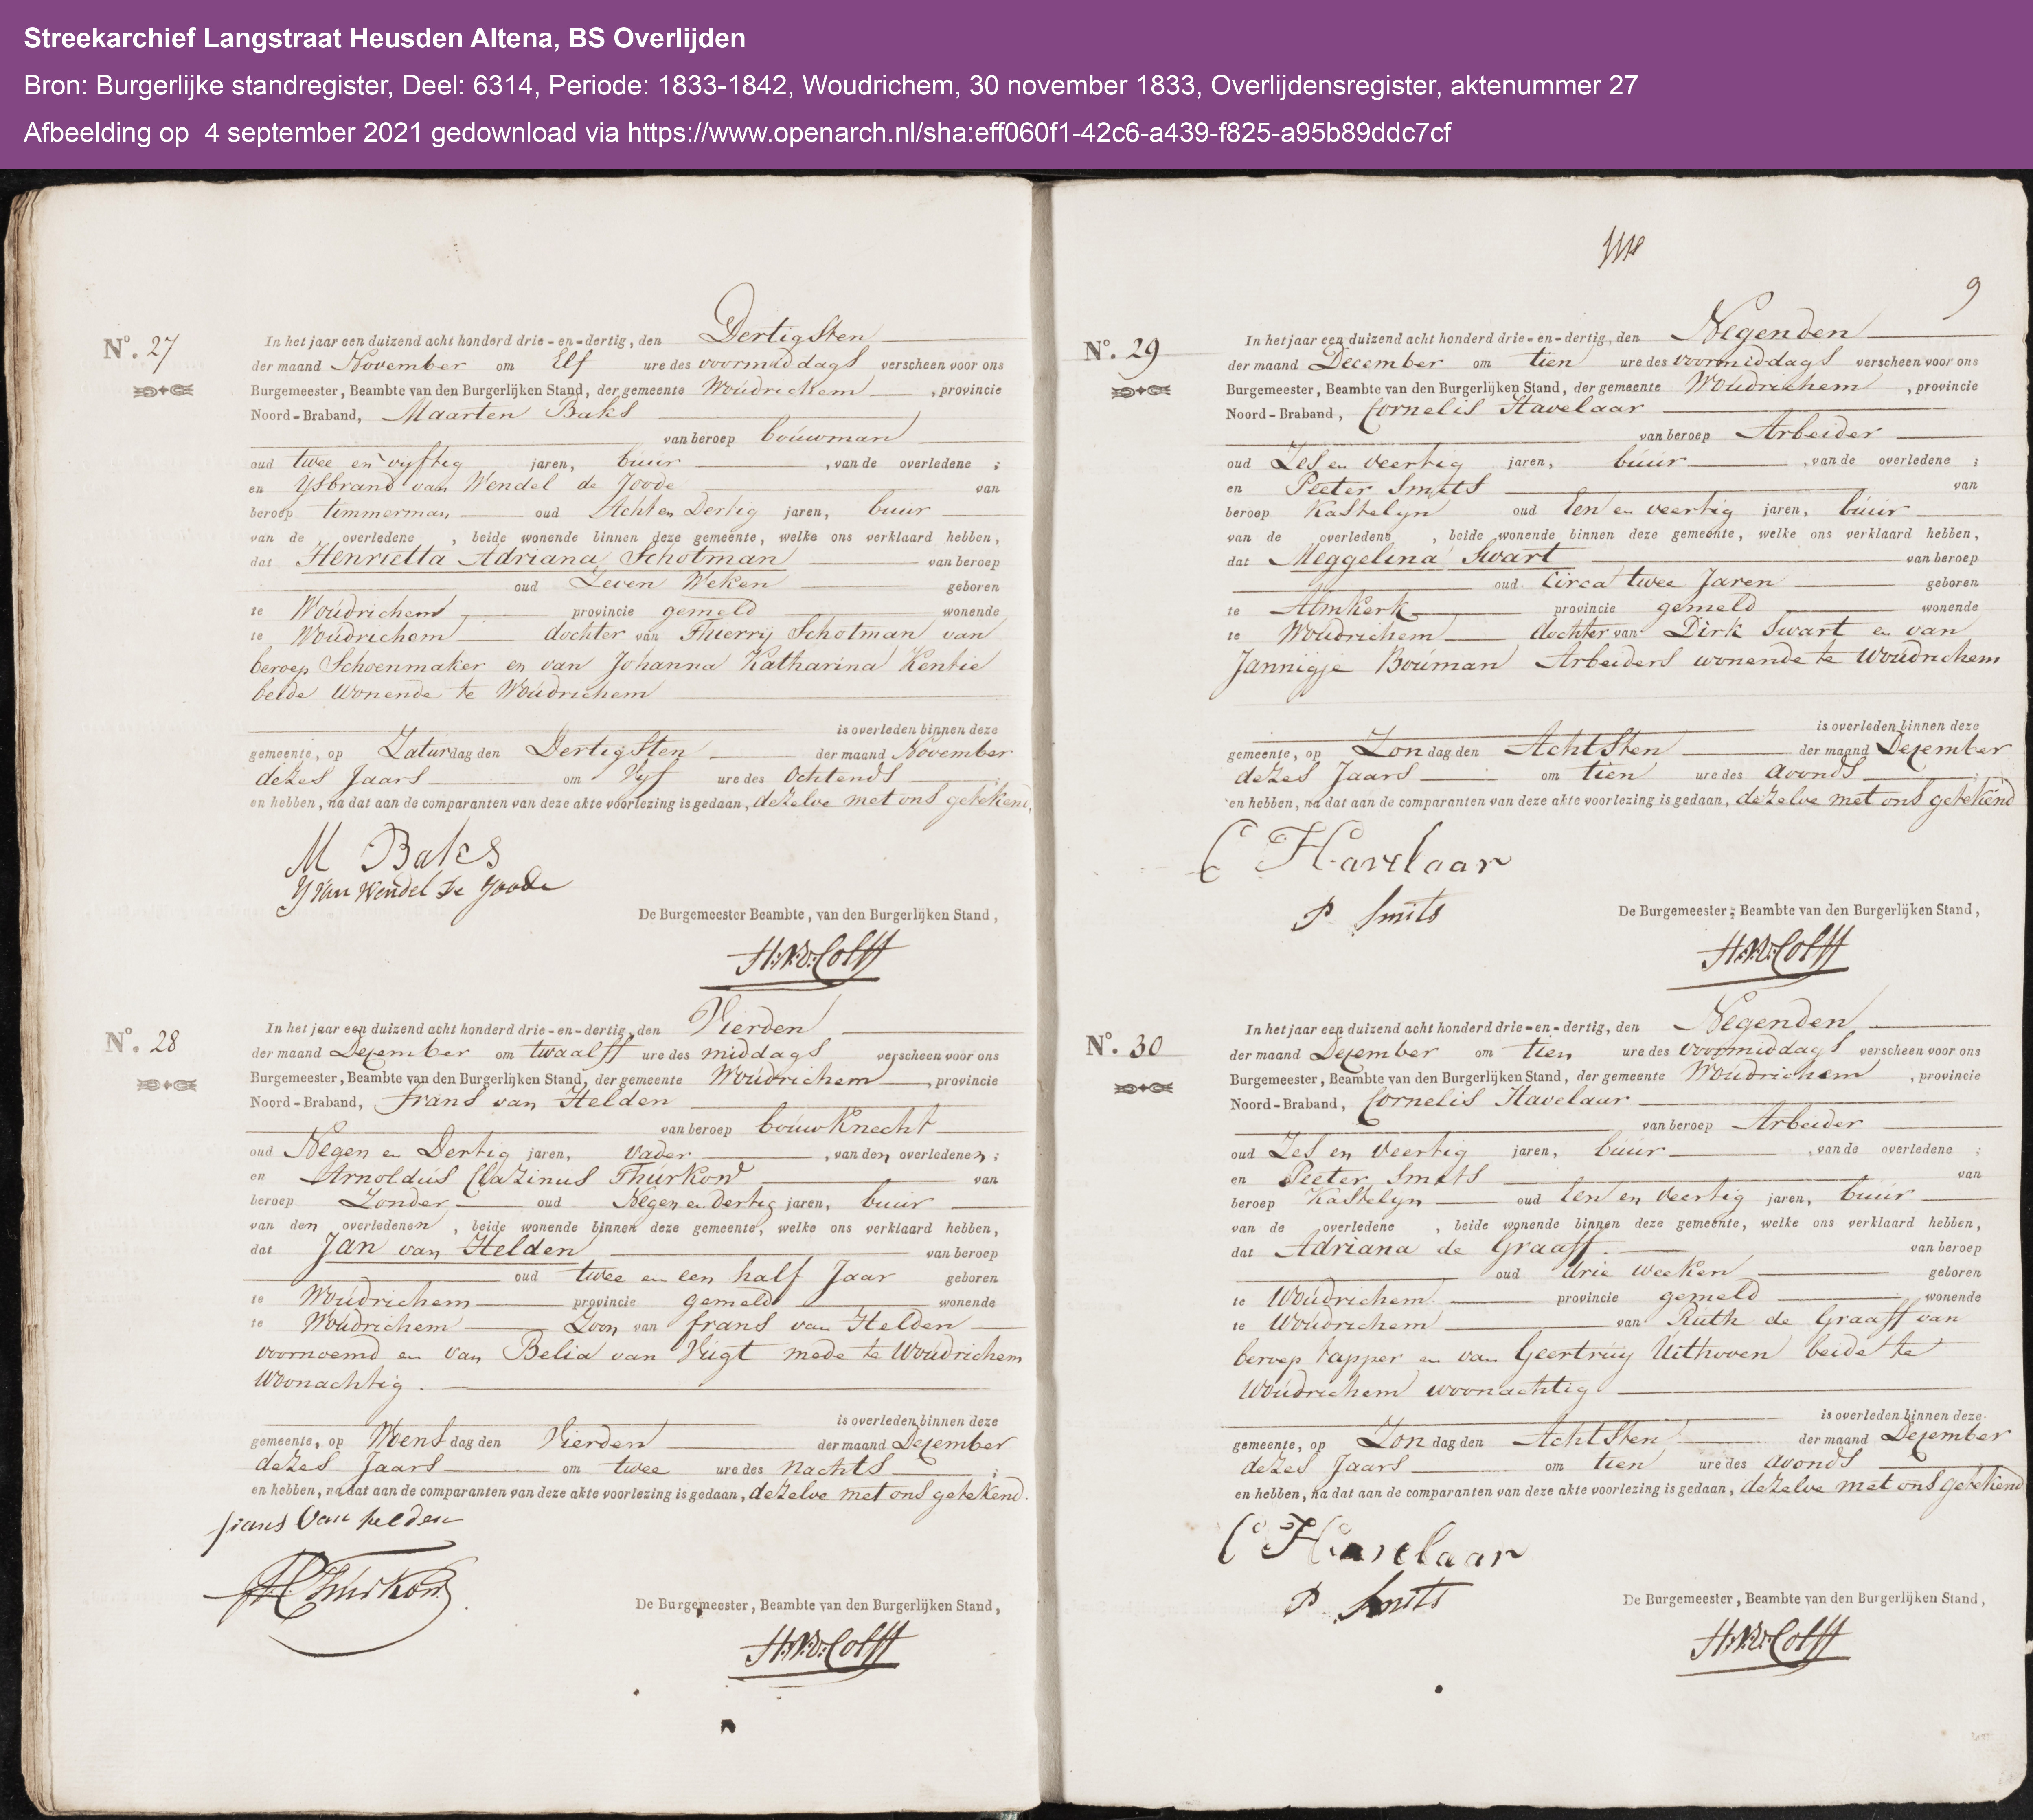 Streekarchief Langstraat Heusden Altena, BS Overlijden
Bron: Burgerlijke standregister, Deel: 6314, Periode: 1833-1842, Woudrichem, 30 november 1833, Overlijdensregister, aktenummer 27
Afbeelding op 4 september 2021 gedownload via https://www.openarch.nl/sha:eff060f1-42c6-a439-f825-a95b89ddc7cf
No. 27
In het jaar een duizend acht honderd drie-en-dertig, den Dertigsten
der maand November om Elf ure des voormiddags verscheen voor ons
Burgemeester, Beambte van den Burgerlijken Stand, der gemeente Woudrichem, provincie
Noord-Braband, Maarten Baks
van beroep bouwman
oud twee en vyftig jaren, buur, van de overledene;
en Ysbrand van Wendel de Joode van
beroep timmerman oud Acht en Dertig jaren, buur
van de overledene, beide wonende binnen deze gemeente, welke ons verklaard hebben,
dat Henrietta Adriana Schotman van beroep
oud Zeven Weken geboren
te Woudrichem provincie gemeld wonende
te Woudrichem dochter van Thierry Schotman van
beroep Schoenmaker en van Johanna Katharina Kentie
beide wonende te Woudrichem
is overleden binnen deze
gemeente, op Zaturdag den Dertigsten der maand November
dezes Jaars om Vyf ure des Ochtends;
en hebben, na dat aan de comparanten van deze akte voorlezing is gedaan, dezelve met ons getekend,
M Baks
Y Van Wendel De Joode
De Burgemeester Beambte, van den Burgerlijken Stand,
H:V:D:Colff
No. 28
In het jaar een duizend acht honderd drie-en-dertig, den Vierden
der maand Dezember om twaalff ure des middags verscheen voor ons
Burgemeester, Beambte van den Burgerlijken Stand, der gemeente Woudrichem, provincie
Noord-Braband, Frans van Helden
van beroep bouwknecht
oud Negen en Dertig jaren, Vader, van den overledenen;
en Arnoldus Clazinus Thurkow van
beroep Zonder oud Negen en dertig jaren, buur
van den overledenen, beide wonende binnen deze gemeente, welke ons verklaard hebben,
dat Jan van Helden van beroep
oud twee en een half Jaar geboren
te Woudrichem provincie gemeld wonende
te Woudrichem Zoon van frans van Helden
voornoemd en van Belia van Vugt mede te Woudrichem
Woonachtig.
is overleden binnen deze
gemeente, op Woensdag den Vierden der maand Dezember
dezes Jaars om twee ure des nachts;
en hebben, na dat aan de comparanten van deze akte voorlezing is gedaan, dezelve met ons getekend.
frans Van helden
AC Thurkow
De Burgemeester, Beambte van den Burgerlijken Stand,
H:V:D:Colff
9
No. 29
In het jaar een duizend acht honderd drie-en-dertig, den Negenden
der maand December om tien ure des voormiddags verscheen voor ons
Burgemeester, Beambte van den Burgerlijken Stand, der gemeente Woudrichem, provincie
Noord-Braband, Cornelis Havelaar
van beroep Arbeider
oud Zes en veertig jaren, buur, van de overledene;
en Peeter Smits van
beroep Kastelyn oud Een en veertig jaren, buur
van de overledene, beide wonende binnen deze gemeente, welke ons verklaard hebben,
dat Meggelina Swart van beroep
oud Circa twee Jaren geboren
te Almkerk provincie gemeld wonende
te Woudrichem dochter van Dirk Swart en van
Jannigje Bouman Arbeiders wonende te Woudrichem
is overleden binnen deze
gemeente, op Zondag den Achtsten der maand Dezember
dezes Jaars om tien ure des avonds;
en hebben, na dat aan de comparanten van deze akte voorlezing is gedaan, dezelve met ons getekend
C Havelaar
P Smits
De Burgemeester, Beambte van den Burgerlijken Stand,
H:V:D:Colff
No. 30
In het jaar een duizend acht honderd drie-en-dertig, den Negenden
der maand Dezember om tien ure des voormiddags verscheen voor ons
Burgemeester, Beambte van den Burgerlijken Stand, der gemeente Woudrichem, provincie
Noord-Braband, Cornelis Havelaar
van beroep Arbeider
oud Zes en Veertig jaren, buur, van de overledene;
en Peeter Smits van
beroep Kastelyn oud Een en Veertig jaren, buur
van de overledene, beide wonende binnen deze gemeente, welke ons verklaard hebben,
dat Adriana de Graaff. van beroep
oud drie weeken geboren
te Woudrichem provincie gemeld wonende
te Woudrichem van Ruth de Graaff van
beroep tapper en van Geertruy Uithoven beide te
Woudrichem woonachtig
is overleden binnen deze
gemeente, op Zondag den Achtsten der maand Dezember
dezes Jaars om tien ure des avonds
en hebben, na dat aan de comparanten van deze akte voorlezing is gedaan, dezelve met ons getekend
C Havelaar
P Smits
De Burgemeester, Beambte van den Burgerlijken Stand,
H:V:D:Colff